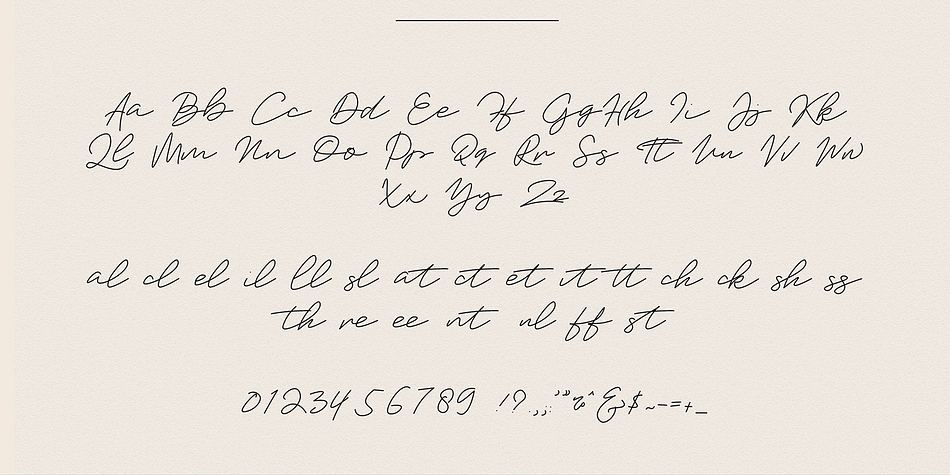 Aa Bb Cc Dd Ee Ff Gg Hh Ii Jj Kk
Ll Mm Nn Oo Pp Qq Rr Ss Tt Uu Vv Ww
Xx Yy Zz
al cl el il ll sl at ct et it tt ch ck sh ss
th re ee nt nl ff st
0123456789 !?.,;:'"%^&$~-=+_